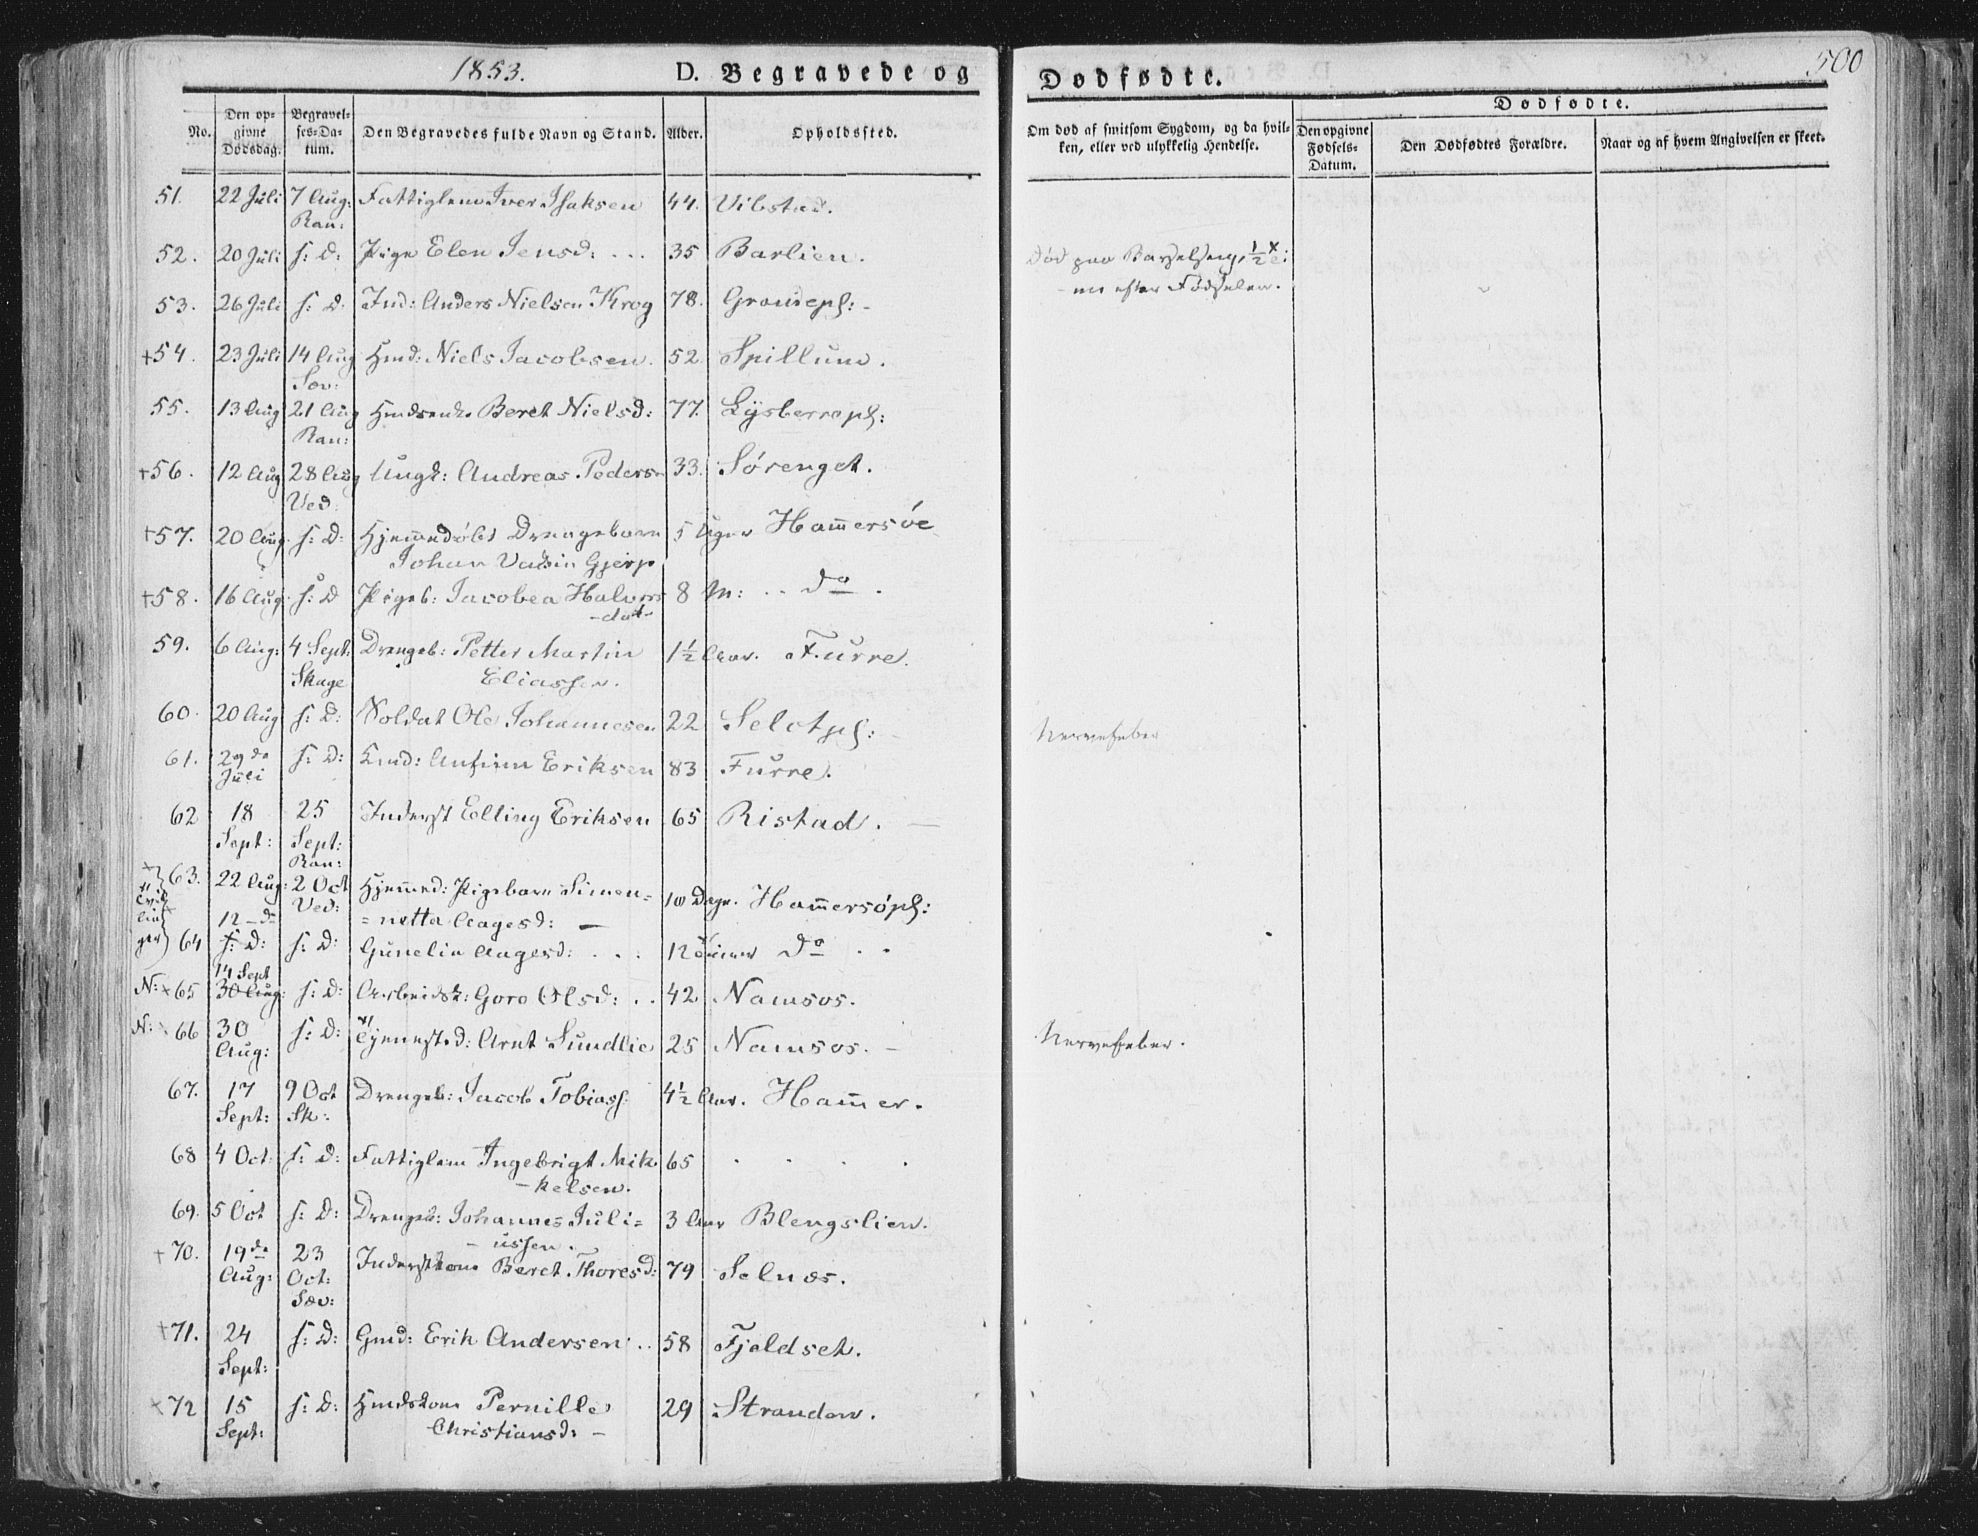 1853. D. Begravede og
Dødfødte. 500
No. Den opgivne Dødsdag. Begravelses-Datum. Den Begravedes fulde Navn og Stand. Alder. Opholdssted.
Om død af smitsom Sygdom, og da hvilken, eller ved ulykkelig Hendelse. Dødfødte. Den opgivne Fødsels-Datum. Den Dødfødtes Forældre. Naar og af hvem Angivelsen er skeet.
51. 22 Juli 7 Aug: Fattiglem Iver Isaksen 44. Vibstad.
Ran:
52. 20 Juli s: D: Pige Elen Jensd: ... 35 Barlien. Død paa Barselseng,
efter Fødselen.
53. 26 Juli s: D. Ind: Anders Nielsen Krog 78. Grandepl: -
+54. 23 Juli 14 Aug Hmd: Niels Jacobsen. 52 Spillum.
Sæv:
55. 13 Aug 21 Aug Beret Nielsd: 77. Lysberrepl:
Ran:
+56. 12 Aug 28 Aug Ungk: Andreas Pedersn 33. Sørenget.
Ved.
+57. 20 Aug. s: D: Hjemmedøbt Drengebarn 5 Uger Ham̅ersøe
Johan Gjerp
+58. 16 Aug: s: D Pigeb: Jacobea Halvors 8 M: .. do.
-dat-
59. 6 Aug: 4 Sept: Drengeb: Petter Martin 1½ Aar. Furre.
Skage Eliassen.
60. 20 Aug s: D: Soldat Ole Johannesen 22 Selotpl: - Nervefeber
61. 29de s: D: Anfinn Eriksen 83 Furre.
Juli
62 18 25 Inderst Elling Eriksen 65 Ristad. -
Sept: Sept:
Ran:
+ 63. 22 Aug: 2 Oct Hjemmed: Pigebarn Simen= 10 Dage. Ham̅ersøpl:
Ved:
12 - do = netta Aagesd: -
64 s: D: s: D: Gunelia Aagesd: ... 12 do ..
14 Sept
N: + 65 30 Aug: s: D: Arbeidsk: Goro Olsd: .. 42 Namsos.
N: 66 30 s: D: Tjenestd: Arnt Sundlie 25 Namsos. - Nervefeber.
Aug:
67. 17 9 Oct Drengeb: Jacob Tobiass: 4½ Aar. Ham̅er.
Sept: Sk:
68 4 Oct. s: D: Fattiglem Ingebrigt Mik 65 . . . .
-kelsen.
69. 5 Oct s: D: Drengeb: Johannes Juli= 3 Aar Blengslien.
- ussen.
+ 70. 19de 23 Inderstkone Beret Thoresd: 79 Selnæs.
Aug: Oct:
Sæv:
+71. 24 s: D: Gmd: Erik Andersen .. 58 Fjeldset.
Sept:
+72 15 s: D: Hmdskone Pernille 29 Stranden.
Sept: Christiansd: -